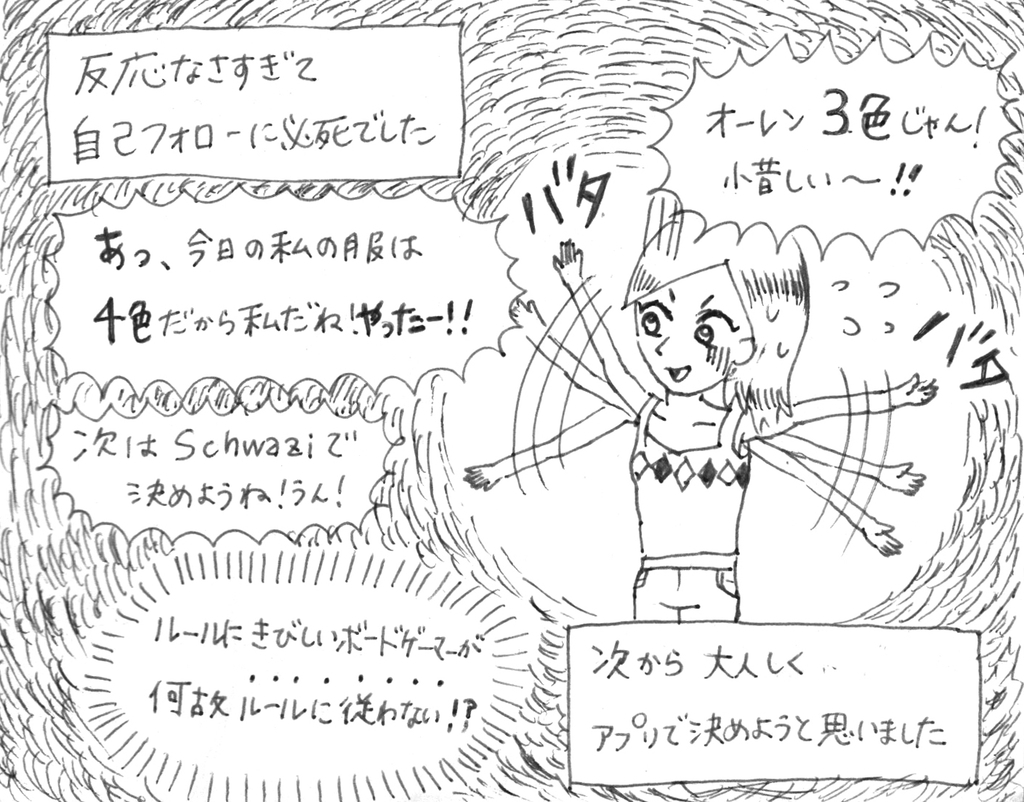 反応なさすぎて
自己フォローに必死でした
オーレン3色じゃん!
小昔しい〜!!
バタ
あっ、今日の私の服は
4色だから私だね!やったー!!
バタ
次はSchwaziで
決めようね!うん!
ルールにきびしいボードゲーマーが
何故ルールに従わない!?
次から大人しく
アプリで決めようと思いました